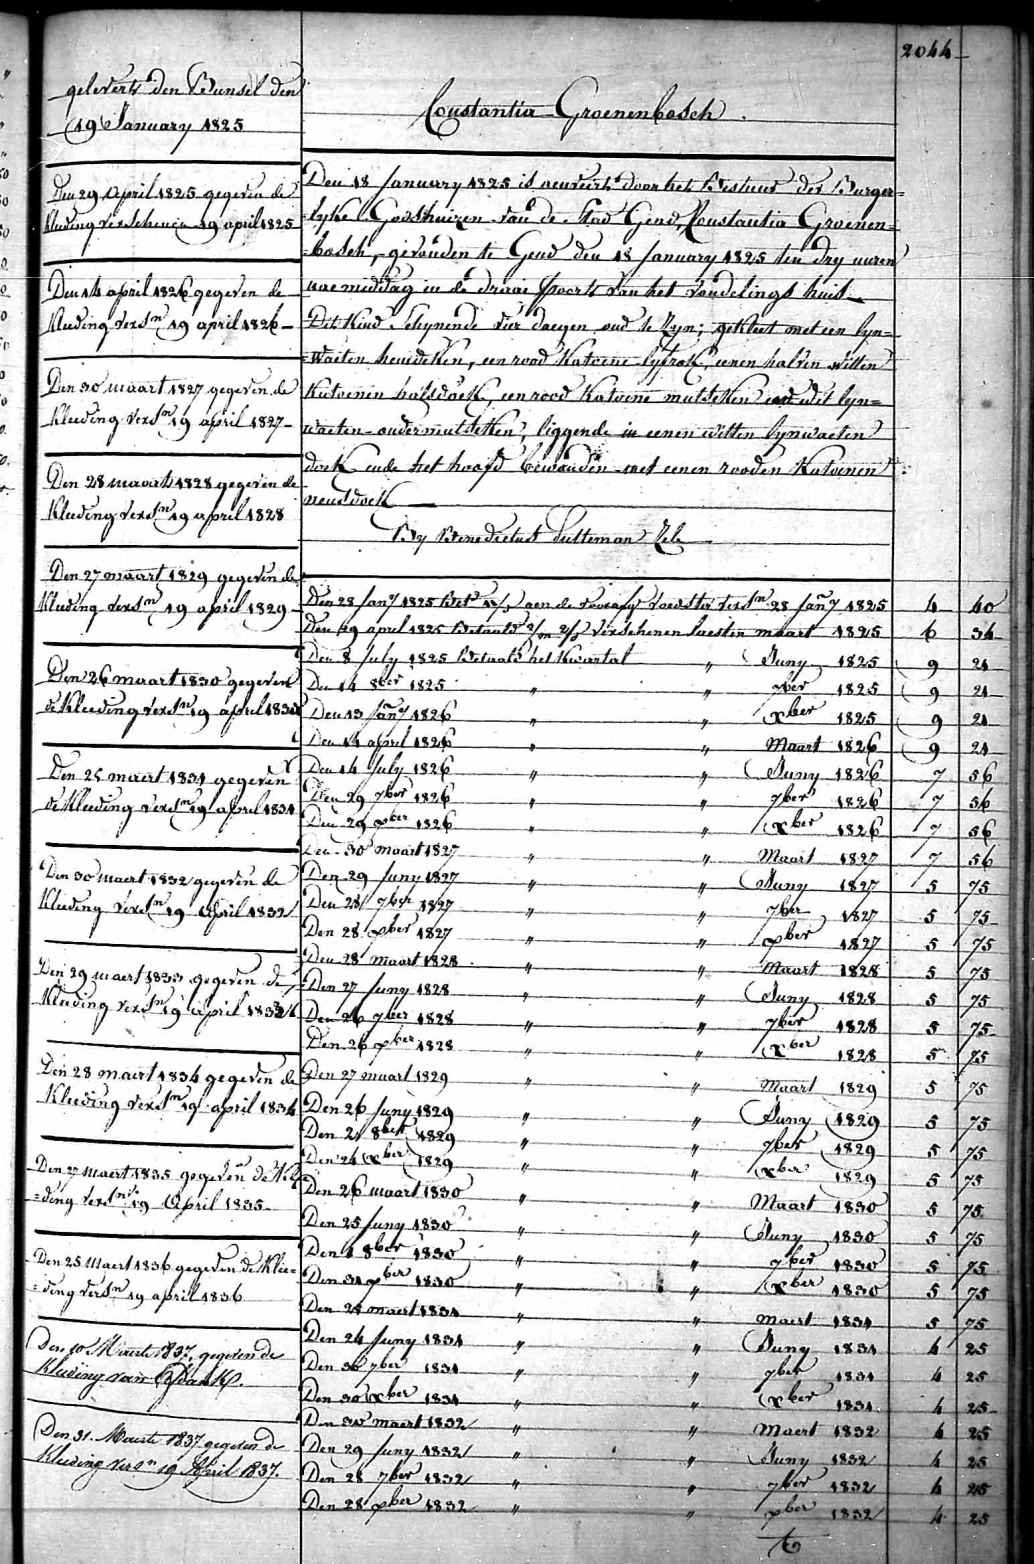 2044
geleverts den Bunsel den
19 January 1825
Constantia Groenenbosch.
Den 29 April 1825 gegeven de
kleeding verschenen 19 april 1825
Den 14 april 1826 gegeven de
kleeding versn 19 april 1826
Den 30 maart 1827 gegeven de
kleeding versn 19 april 1827
Den 28 maart 1828 gegeven de
kleeding versn 19 april 1828
Den 27 maart 1829 gegeven de
kleeding versn 19 april 1829
Den 26 maart 1830 gegeven
de kleeding versn 19 april 1830
Den 25 maert 1831 gegeven
de kleeding versn 19 april 1831
Den 30 maert 1832 gegeven de
kleeding versn 19 april 1832
Den 29 maert 1833 gegeven de
kleeding versn 19 april 1833
Den 28 maert 1834 gegeven de
kleeding versn 19 april 1834
Den 27 maert 1835 gegeven de klee
=ding versn 19 April 1835
Den 25 Maert 1836 gegeven de klee=
=ding versn 19 april 1836
Den 10 Maerte 1837, gegeven de
kleeding van
Den 31. Maerte 1837 gegeven de
kleeding versn 19 April 1837.
Den 18 January 1825 is aenveert door het Bestuer der Burger=
=lyke Godshuizen van de Stad Gend, Constantia Groenen=
=bosch, gevonden te Gend den 18 January 1825 ten dry uuren
nae middag in de draai poorte van het vondelings huis
Dit kind schynende vier daegen oud te zyn; gekleet met een lyn=
=waeten hemdeken, een rood katoene lyfrok, eenen halven witten
katoenen halsdoek, een rood katoene mutseken een wit lyn=
waeten ondermutseken, liggende in eenen witten lynwaeten
doek ende het hoofd bewonden met eenen rooden katoenen
neusdoek
By Benedictus Zele
Den 28 Jany 1825 Bet aen de voedster versn 28 Jany 1825 4 40
Den 29 april 1825 Betaald verschenen laesten maart 1825 6 34
Den 8 July 1825 Betaald het kwartal " Juny 1825 9 21
Den 14 8ber 1825 " " 7ber 1825 9 21
Den 13 Jany 1826 " " xber 1825 9 21
Den 14 april 1826 " " Maart 1826 9 21
Den 14 July 1826 " " Juny 1826 7 56
Den 29 7ber 1826 " " 7ber 1826 7 56
Den 29 xber 1826 " " xber 1826 7 56
Den 30 maart 1827 " " Maart 1827 7 56
Den 29 Juny 1827 " " Juny 1827 5 75
Den 28 7ber 1827 " " 7ber 1827 5 75
Den 28 xber 1827 " " xber 1827 5 75
Den 28 maart 1828 " " Maart 1828 5 75
Den 27 Juny 1828 " " Juny 1828 5 75
Den 26 7ber 1828 " " 7ber 1828 5 75
Den 26 xber 1828 " " xber 1828 5 75
Den 27 maart 1829 " " Maart 1829 5 75
Den 26 Juny 1829 " " Juny 1829 5 75
Den 21 8ber 1829 " " 7ber 1829 5 75
Den 24 xber 1829 " " xber 1829 5 75
Den 26 maart 1830 " " Maart 1830 5 75
Den 25 Juny 1830 " " Juny 1830 5 75
Den 1 8ber 1830 " " 7ber 1830 5 75
Den 31 xber 1830 " " xber 1830 5 75
Den 25 maert 1831 " " maert 1831 5 75
Den 24 Juny 1831 " " Juny 1831 4 25
Den 30 7ber 1831 " " 7ber 1831 4 25
Den 30 xber 1831 " " xber 1831 4 25
Den 30 maert 1832 " " Maert 1832 4 25
Den 29 Juny 1832 " " Juny 1832 4 25
Den 28 7ber 1832 " " 7ber 1832 4 25
Den 28 xber 1832 " " xber 1832 4 25